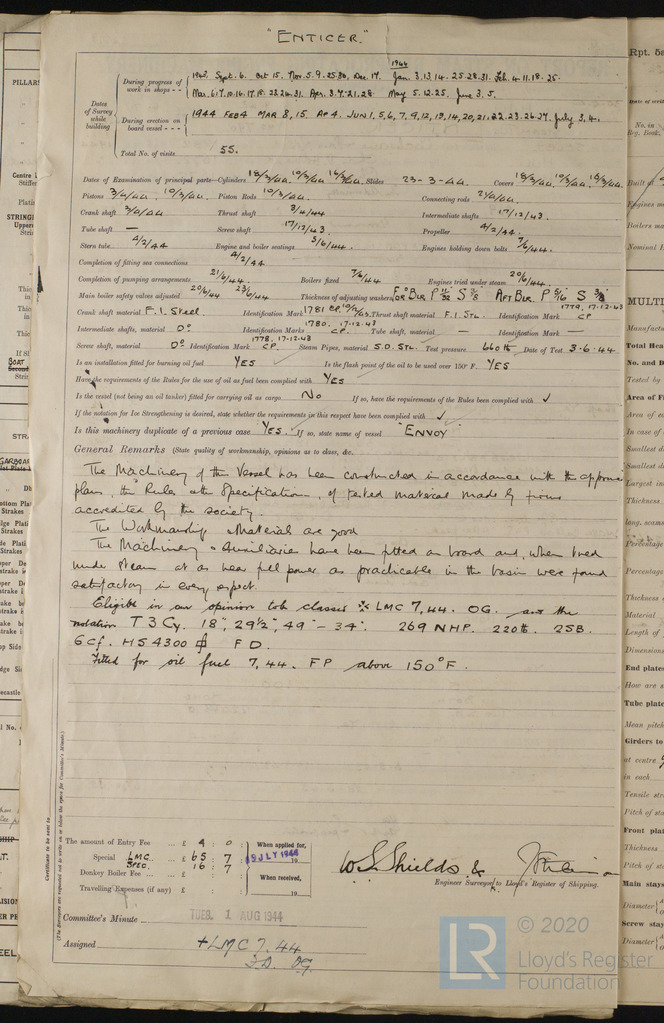 "ENTICER."
Dates of Survey while building
During progress of work in shops - -
1943. Sept. 6. Oct 15. Nov. 5. 9. 25. 30. Dec. 14. 1944 Jan. 3. 13. 14. 25. 28. 31. Feb. 4. 11. 18. 25.
Mar. 6. 7. 10. 16. 17. 18. 22. 26. 31. Apr. 3. 4. 21. 28. May 5. 12. 25. June 3. 5.
During erection on board vessel - - -
1944 FEB 4 MAR 8, 15, AP 4. JUN 1, 5, 6, 7, 9, 12, 13, 14, 20, 21, 22. 23. 26. 27. July 3, 4.
Total No. of visits 55.
Dates of Examination of principal parts—Cylinders 18/3/44. 10/3/44. 16/3/44. Slides 23-3-44. Covers 18/3/44. 10/3/44. 16/3/44.
Pistons 3/4/44. 10/3/44. Piston Rods 10/3/44. Connecting rods 21/4/44.
Crank shaft 3/4/44 Thrust shaft 3/4/44 Intermediate shafts 17/12/43.
Tube shaft — Screw shaft 17/12/43. Propeller 4/2/44.
Stern tube 4/2/44 Engine and boiler seatings 5/6/44. Engines holding down bolts 7/6/44.
Completion of fitting sea connections 4/2/44
Completion of pumping arrangements 21/6/44. Boilers fixed 7/6/44 Engines tried under steam 20/6/44.
Main boiler safety valves adjusted 20/6/44 23/6/44 Thickness of adjusting washers FOR'D BLR P 11/32 S 3/8 AFT BLR. P 5/16 S 3/8
Crank shaft material F. I. Steel. Identification Mark 1781 CP. Thrust shaft material F. I. STL. Identification Mark 1779, 17-12-43 CP
Intermediate shafts, material Do. Identification Marks 1780. 17-12-43 CP. Tube shaft, material — Identification Mark —
Screw shaft, material Do Identification Mark 1778, 17-12-43 CP. Steam Pipes, material S. D. STL. Test pressure 660 lb Date of Test 3-6-44
Is an installation fitted for burning oil fuel YES Is the flash point of the oil to be used over 150° F. YES
Have the requirements of the Rules for the use of oil as fuel been complied with YES
Is the vessel (not being an oil tanker) fitted for carrying oil as cargo NO If so, have the requirements of the Rules been complied with ✓
If the notation for Ice Strengthening is desired, state whether the requirements in this respect have been complied with ✓
Is this machinery duplicate of a previous case YES. If so, state name of vessel "ENVOY"
General Remarks (State quality of workmanship, opinions as to class, &c.
The Machinery of this Vessel has been constructed in accordance with the approved
plans, the Rules & the Specification, of tested material made by firms
accredited by the society.
The Workmanship & Materials are good
The Machinery & Auxiliaries have been fitted on board and, when tried
under steam at as near full power as practicable in the basin were found
satisfactory in every respect.
Eligible in our opinion to be classed ✠ LMC 7,44. OG. and the
notation T 3 Cy. 18", 29½", 49" - 34". 269 NHP. 220 lb. 2SB.
6 Cf. HS 4300 F D.
Fitted for oil fuel 7,44. FP above 150° F.
Certificate to be sent to
(The Surveyors are requested not to write on or below the space for Committee's Minute.)
The amount of Entry Fee .. £ 4 : 0 : When applied for,
Special LMC .. £ 65 : 7 19 JULY 1944
SPEC. 16 : 7
Donkey Boiler Fee .. £ : : When received,
Travelling Expenses (if any) £ : : 19
W S Shields &
Engineer Surveyor to Lloyd's Register of Shipping.
Committee's Minute TUES. 1 AUG 1944
Assigned + LMC 7. 44
F.D. OG.
© 2020
LR
Lloyd's Register
Foundation